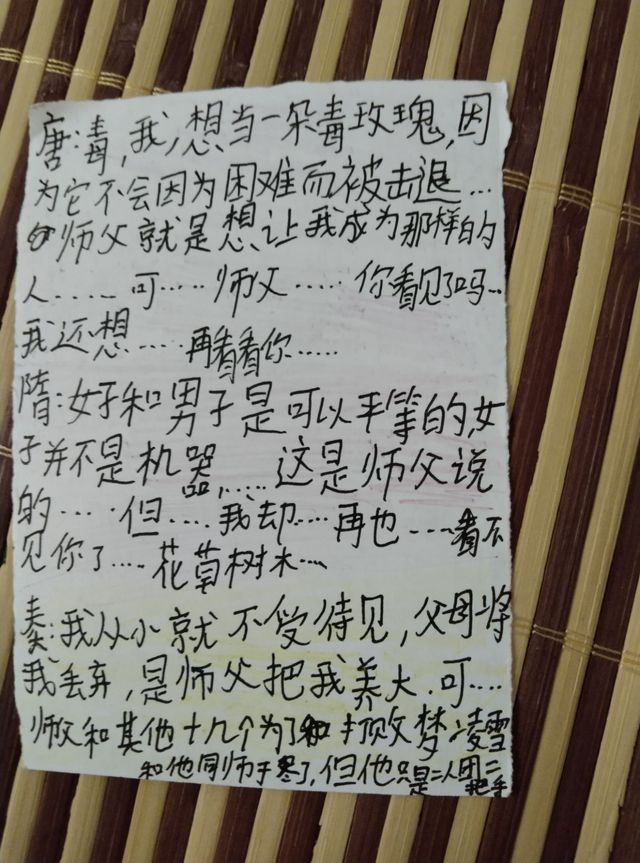 唐:毒,我,想当一朵毒玫瑰,因
为它不会因为困难而被击退...
师父就是想让我成为那样的
人...... 可..... 师父..... 你看见了吗...
我还想..... 再看看你.....
隋:女子和男子是可以平等的,女
子并不是机器,..... 这是师父说
的..... 但.... 我却.... 再也....看不
见你了.... 花草树木...
秦:我从小就不受待见,父母将
我丢弃,是师父把我养大.可....
师父和其他十几个为了打败梦凌雪
和他同师于寒了,但他只是二人团二
把手